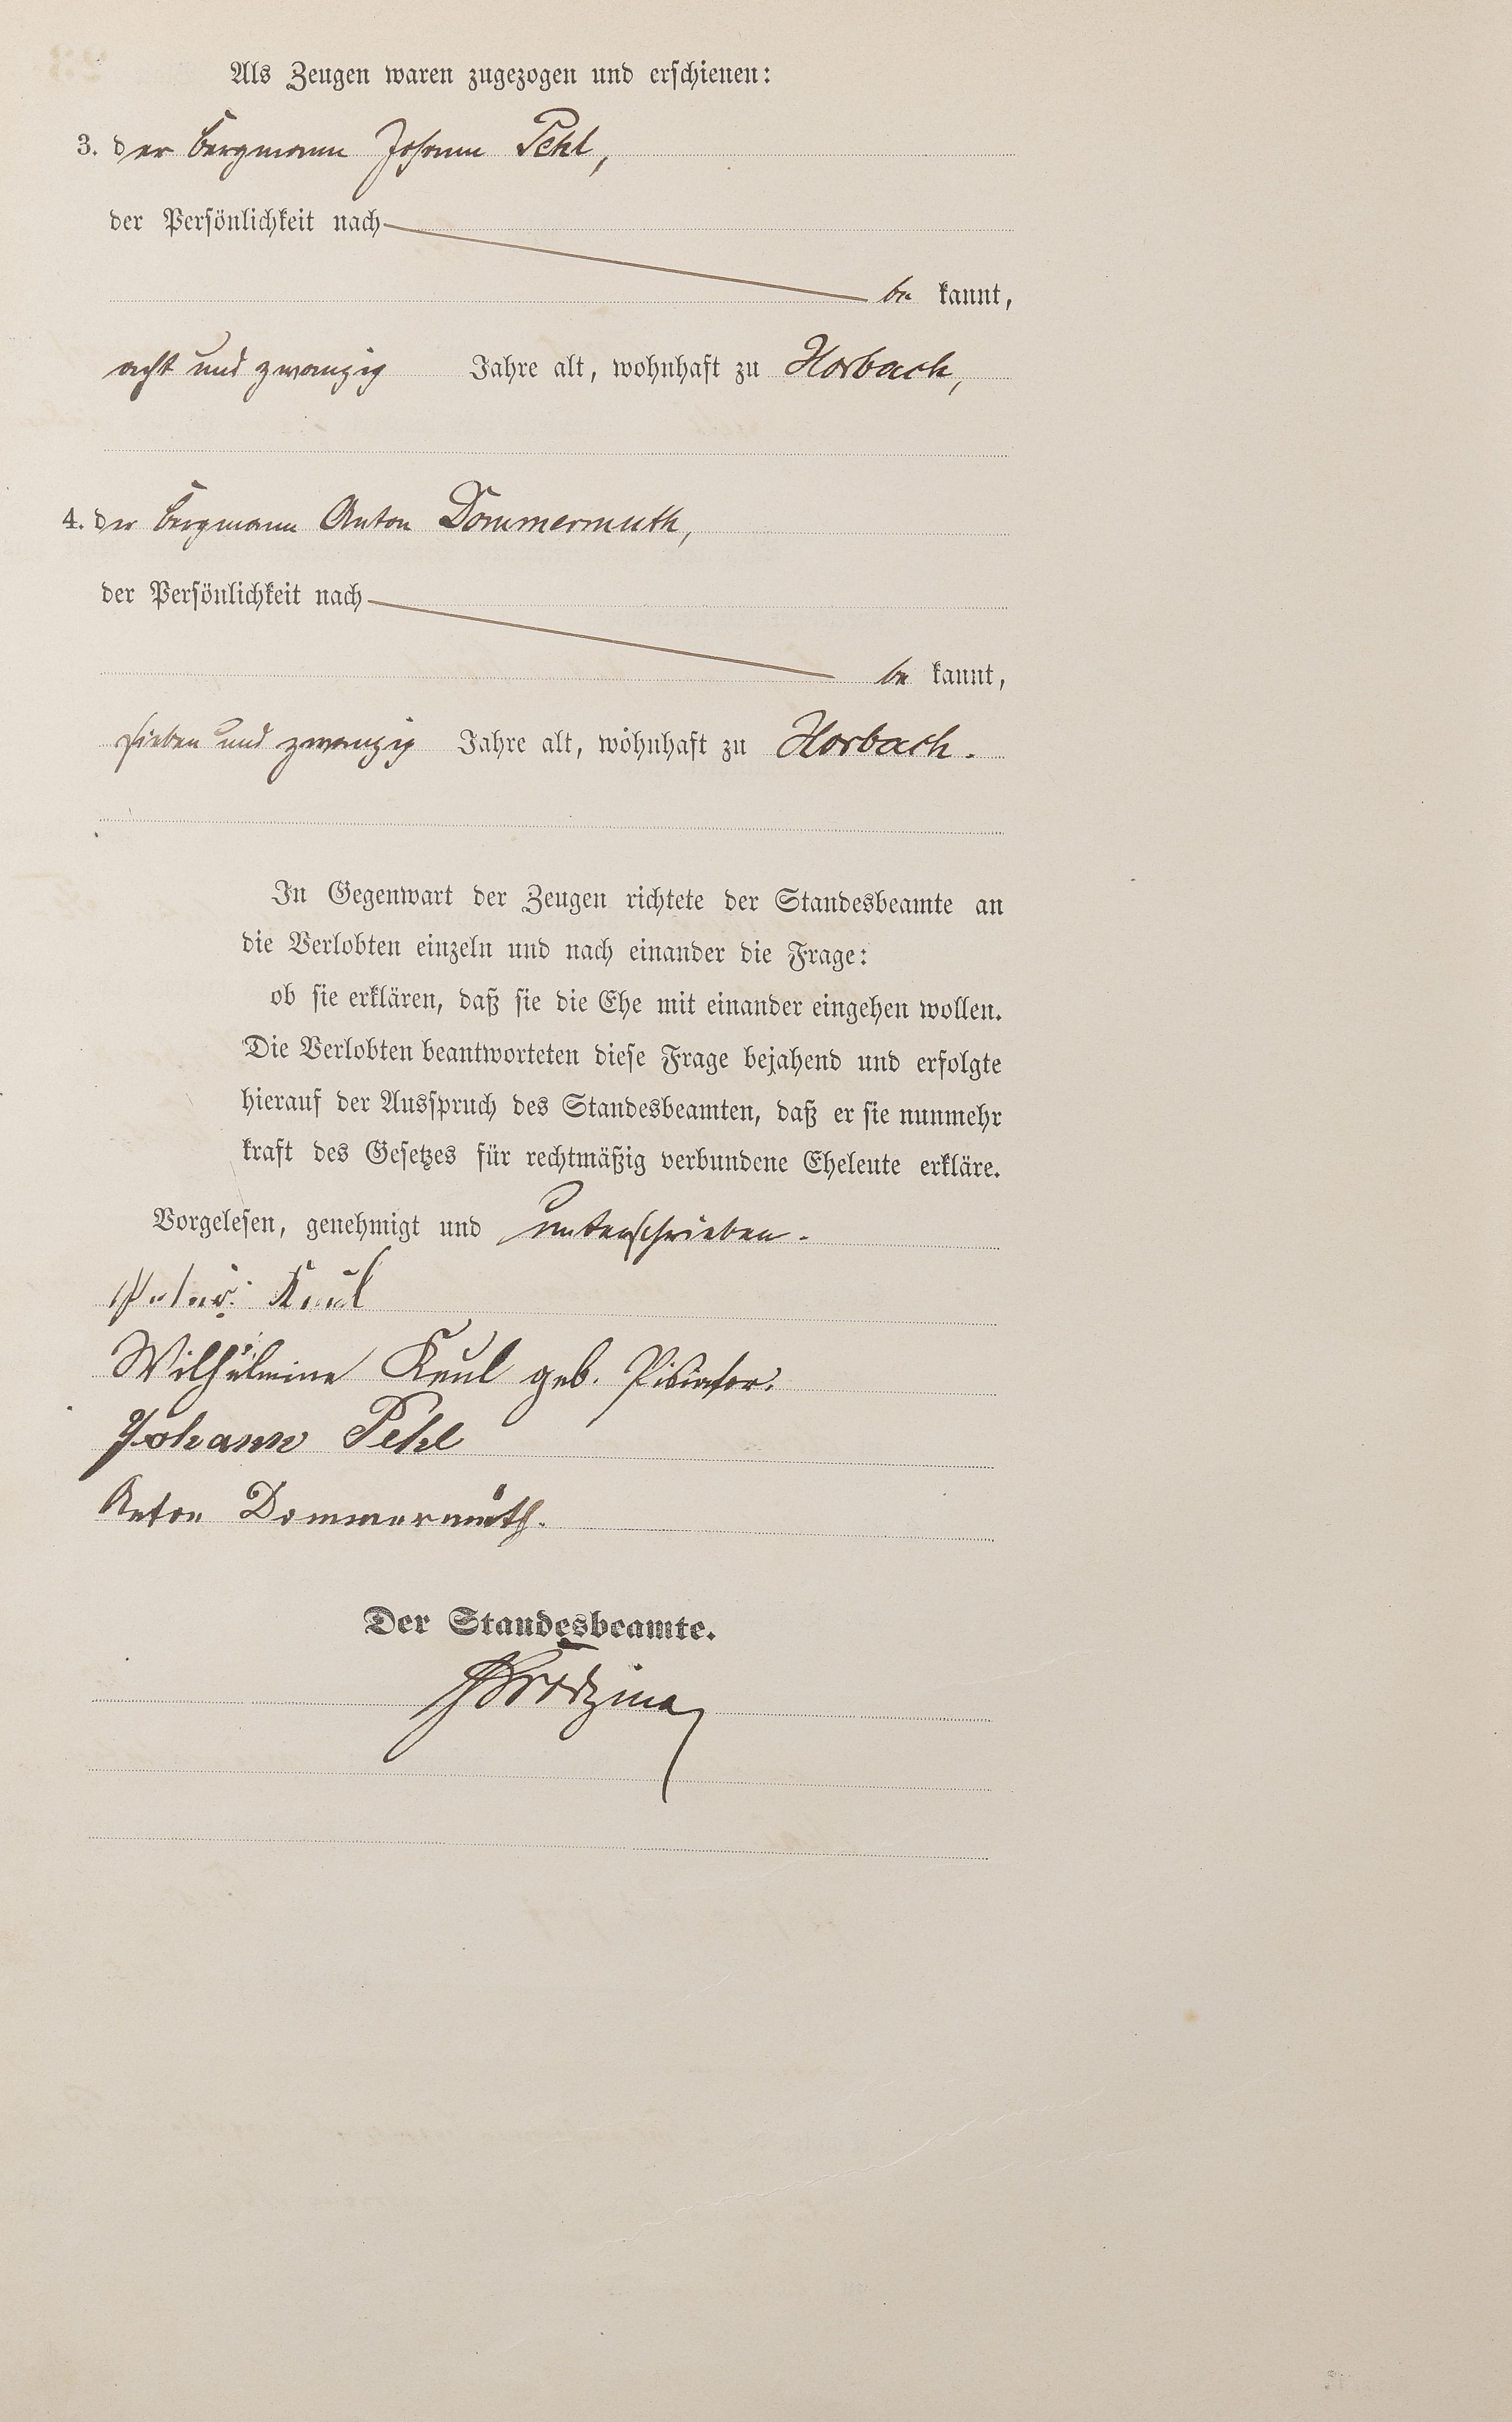 Als Zeugen waren zugezogen und erschienen:
3. der Bergmann Johann Pehl,
der Persönlichkeit nach
be kannt,
acht und zwanzig Jahre alt, wohnhaft zu Horbach,
4. der Bergmann Anton Dommermuth,
der Persönlichkeit nach
be kannt,
sieben und zwanzig Jahre alt, wohnhaft zu Horbach.
In Gegenwart der Zeugen richtete der Standesbeamte an
die Verlobten einzeln und nach einander die Frage:
ob sie erklären, daß sie die Ehe mit einander eingehen wollen.
Die Verlobten beantworteten diese Frage bejahend und erfolgte
hierauf der Ausspruch des Standesbeamten, daß er sie nunmehr
kraft des Gesetzes für rechtmäßig verbundene Eheleute erkläre.
Vorgelesen, genehmigt und unterschrieben.
Peter Keul
Wilhelmine Keul geb.
Johann Pehl
Anton Dommermuth.
Der Standesbeamte.